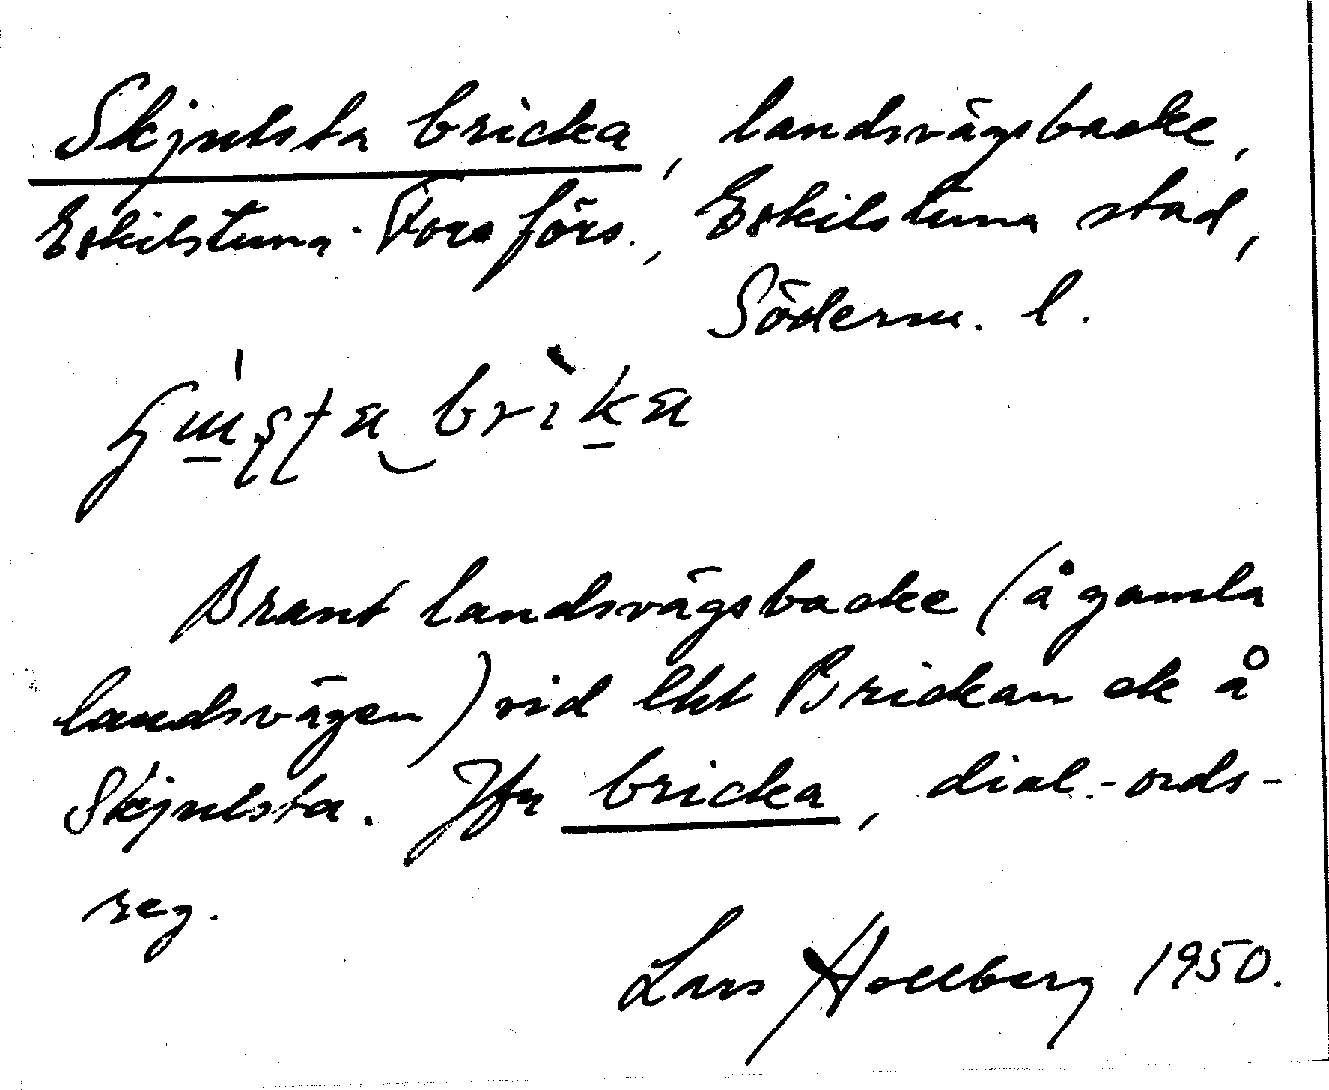 Skjulsta bricka, landsvägsbacke,
Eskilstuna Fors förs., Eskilstuna stad,
Söderm. l.
Brant landsvägsbacke (å gamla
landsvägen) vid lht Brickan ok å
Skjulsta. Jfr bricka, dial.-ords-
reg.
Lars Hellberg 1950.